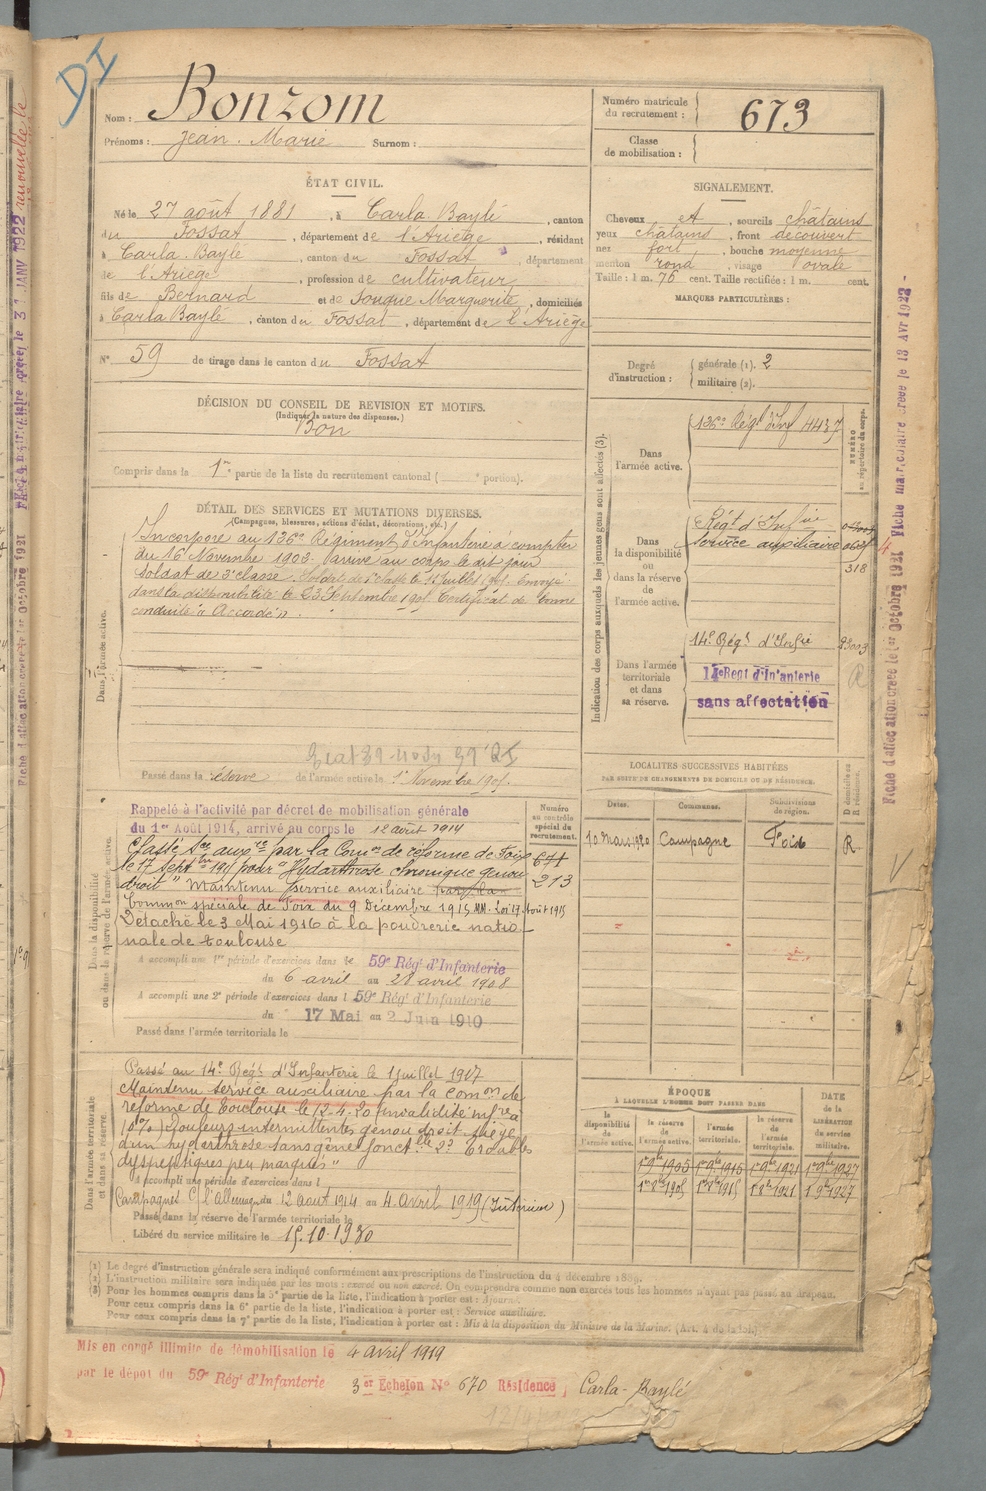 DI
Nom : Bonzom
Prénoms : Jean. Marie Surnom :
Numéro matricule du recrutement : 673
Classe de mobilisation :
ÉTAT CIVIL.
Né le 27 août 1881, à Carla Baylé, canton
du Fossat, département de l'Ariège, résidant
à Carla. Baylé, canton du Fossat, département
de l'Ariège, profession de cultivateur
fils de Bernard et de Souque Marguerite, domiciliés
à Carla Baylé, canton du Fossat, département de l'Ariège
N° 59 de tirage dans le canton du Fossat
SIGNALEMENT.
Cheveux et, sourcils châtains
yeux châtains, front découvert
nez fort, bouche moyenne
menton rond, visage ovale
Taille : 1 m. 76 cent. Taille rectifiée : 1 m. cent.
MARQUES PARTICULIÈRES :
Degré d'instruction : générale (1). 2
militaire (2).
DÉCISION DU CONSEIL DE REVISION ET MOTIFS.
(Indiquer la nature des dispenses.)
Bon
Compris dans la 1re partie de la liste du recrutement cantonal ( portion).
DÉTAIL DES SERVICES ET MUTATIONS DIVERSES.
(Campagnes, blessures, actions d'éclat, décorations, etc.)
Dans l'armée active.
Incorporé au 136e Régiment d'Infanterie à compter
du 16 Novembre 1903. arrivé au corps le dit jour
soldat de 2e classe. Soldat de 1e classe le Juillet 1905. Envoyé
dans la disponibilité le 23 Septembre 1905. Certificat de bonne
conduite "Accordé".
Passé dans la réserve de l'armée active le 1er Novembre 1905.
Indication des corps auxquels les jeunes gens sont affectés (3).
NUMÉRO au répertoire du corps.
Dans l'armée active.
136e Régt d'Inf 4437
Dans la disponibilité ou dans la réserve de l'armée active.
Régt d'Infie
Service auxiliaire
318
Dans l'armée territoriale et dans sa réserve.
14e Régt d'Infie
14e Regt d'Infanterie
sans affectation
R
Dans la disponibilité ou dans la réserve de l'armée active.
Rappelé à l'activité par décret de mobilisation générale
du 1er Août 1914, arrivé au corps le 12 août 1914
Classé Sce auxre par la Comon de réforme de Foix
le 17 septbre 1915 pour "Hydarthrose chronique genou
droit" Maintenu service auxiliaire par la
Common spéciale de Foix du 9 Décembre 1915 MM. Loi 17 Août 1915
Détaché le 3 Mai 1916 à la poudrerie natio-
nale de Toulouse
A accompli une 1re période d'exercices dans le 59e Régt d'Infanterie
du 6 avril au 28 avril 1908
A accompli une 2e période d'exercices dans l 59e Régt d'Infanterie
du 17 Mai au 2 Juin 1910
Passé dans l'armée territoriale le
Numéro au contrôle spécial du recrutement.
671
213
LOCALITÉS SUCCESSIVES HABITÉES
PAR SUITE DE CHANGEMENTS DE DOMICILE OU DE RÉSIDENCE.
Dates. Communes. Subdivisions de région. D domicile ou R résidence.
10 Mars 1920 Campagne Foix R
Dans l'armée territoriale et dans sa réserve.
Passé au 14e Régt d'Infanterie le 1 juillet 1917
Maintenu service auxiliaire par la Comon de
réforme de Toulouse le 12-4-20 (invalidité infre à
10 %) Douleurs intermittentes genou droit siège
d'un hydarthrose sans gêne fonctlle 2° Troubles
dyspeptiques peu marqués"
A accompli une période d'exercices dans l
Campagnes C/ l'Allemag. du 12 août 1914 au 4 avril 1919 (Intérieur)
Passé dans la réserve de l'armée territoriale le
Libéré du service militaire le 15.10.1930
ÉPOQUE
À LAQUELLE L'HOMME DOIT PASSER DANS
la disponibilité de l'armée active. la réserve de l'armée active. l'armée territoriale. la réserve de l'armée territoriale.
DATE de la LIBÉRATION du service militaire.
1er 9bre 1905 1er 9bre 1915 1er 9bre 1921 1er 9bre 1927
(1) Le degré d'instruction générale sera indiqué conformément aux prescriptions de l'instruction du 4 décembre 1889.
(2) L'instruction militaire sera indiquée par les mots : exercé ou non exercé. On comprendra comme non exercés tous les hommes n'ayant pas passé au drapeau.
(3) Pour les hommes compris dans la 5e partie de la liste, l'indication à porter est : Ajourné.
Pour ceux compris dans la 6e partie de la liste, l'indication à porter est : Service auxiliaire.
Pour ceux compris dans la 7e partie de la liste, l'indication à porter est : Mis à la disposition du Ministre de la Marine. (Art. 4 de la loi.)
Mis en congé illimité de démobilisation le 4 avril 1919
par le dépôt du 59e Régt d'Infanterie 3er Echelon N° 670 Résidence, Carla-Baylé
Fiche d'affectation créée le 1er Octobre 1921 Fiche matriculaire créée le 13 Avr 1922